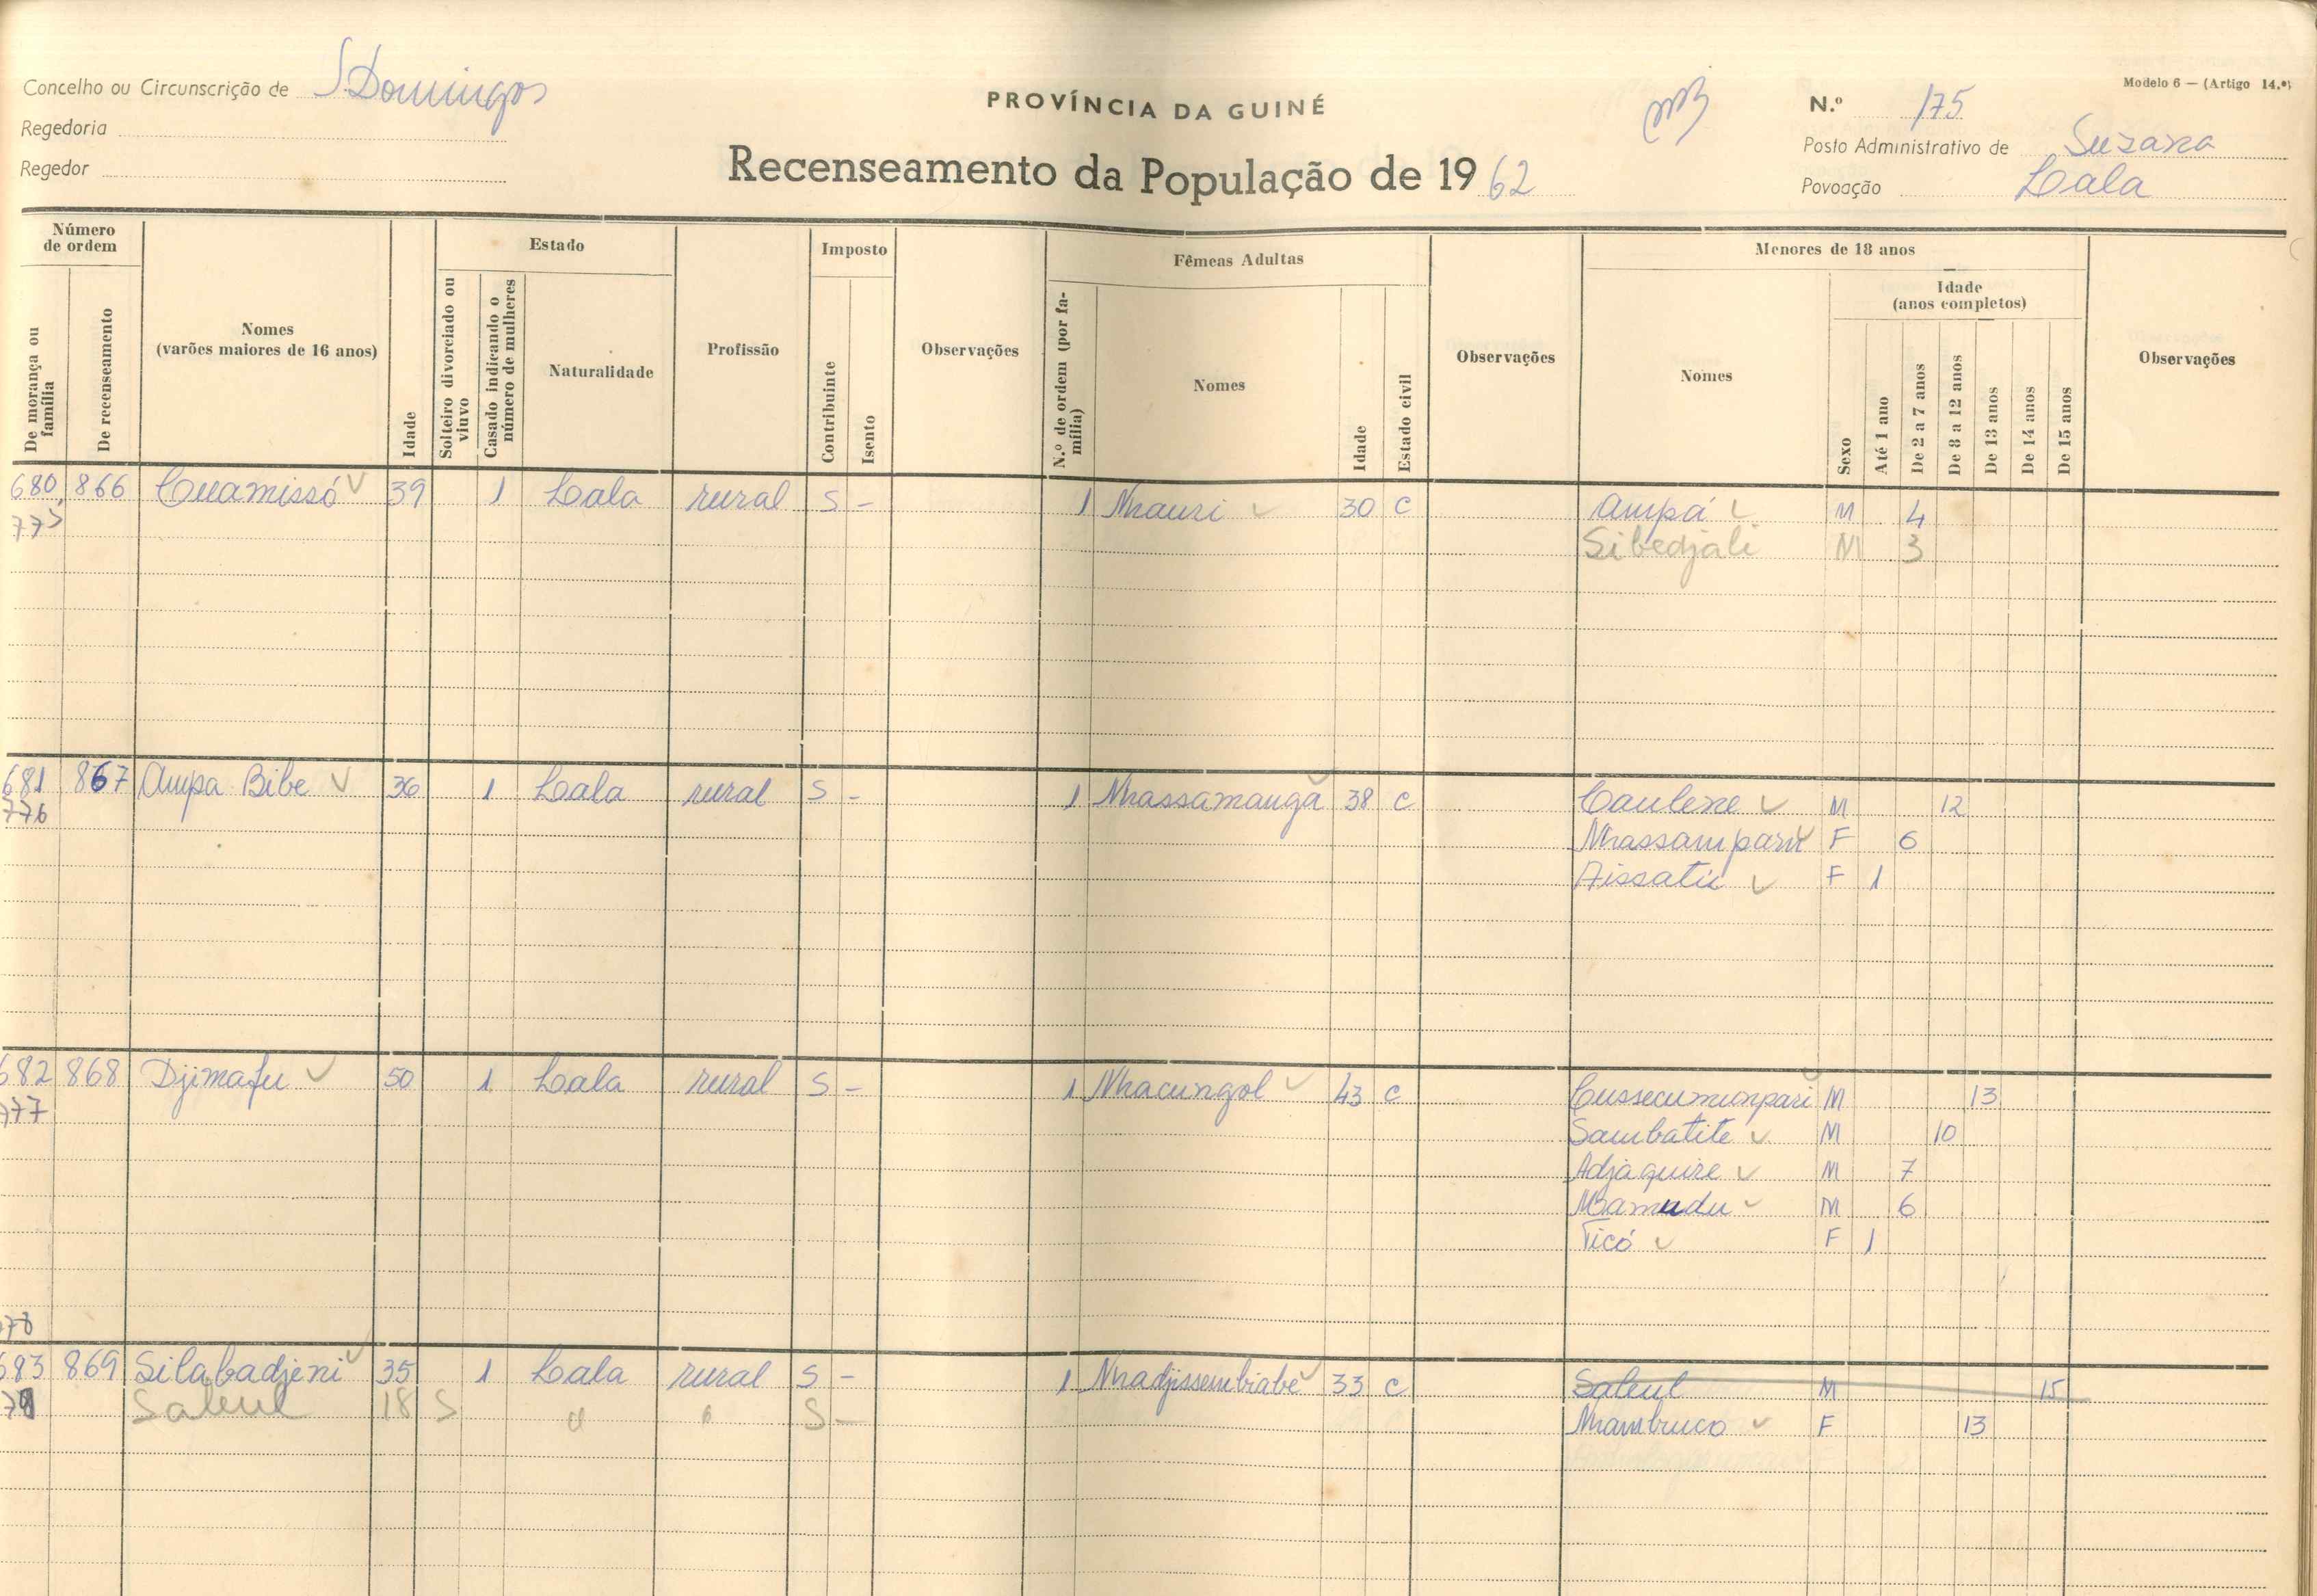 Modelo 6 — (Artigo 14.º)
Concelho ou Circunscrição de S. Domingos
PROVÍNCIA DA GUINÉ
N.º 175
Regedoria
Posto Administrativo de Suzana
Regedor
Recenseamento da População de 1962
Povoação Lala
Número de ordem
De morança ou família
De recenseamento
Nomes
(varões maiores de 16 anos)
Idade
Estado
Solteiro divorciado ou viuvo
Casado indicando o número de mulheres
Naturalidade
Profissão
Imposto
Contribuinte
Isento
Observações
Fêmeas Adultas
N.º de ordem (por família)
Nomes
Idade
Estado civil
Observações
Menores de 18 anos
Nomes
Sexo
Idade
(anos completos)
Até 1 ano
De 2 a 7 anos
De 8 a 12 anos
De 13 anos
De 14 anos
De 15 anos
Observações
680 866 Cuamissó 39 1 Lala rural S - 1 Nhauri 30 C Ampá M 4
775 Sibedjali M 3
681 867 Ampa Bibe 36 1 Lala rural S - 1 Nhassamangã 38 C Caulene M 12
776 Nhassampari F 6
Aissatú F 1
682 868 Djimafu 50 1 Lala rural S - 1 Nhacungol 43 C Cussecumunpari M 13
777 Sambatite M 10
Adjaquire M 7
Mamudu M 6
Ticó F 1
778
683 869 Silabadjeni 35 1 Lala rural S - 1 Nhadjissembiabe 33 C Saleul M 15
Saleul 18 S " " S - Nhambuco F 13